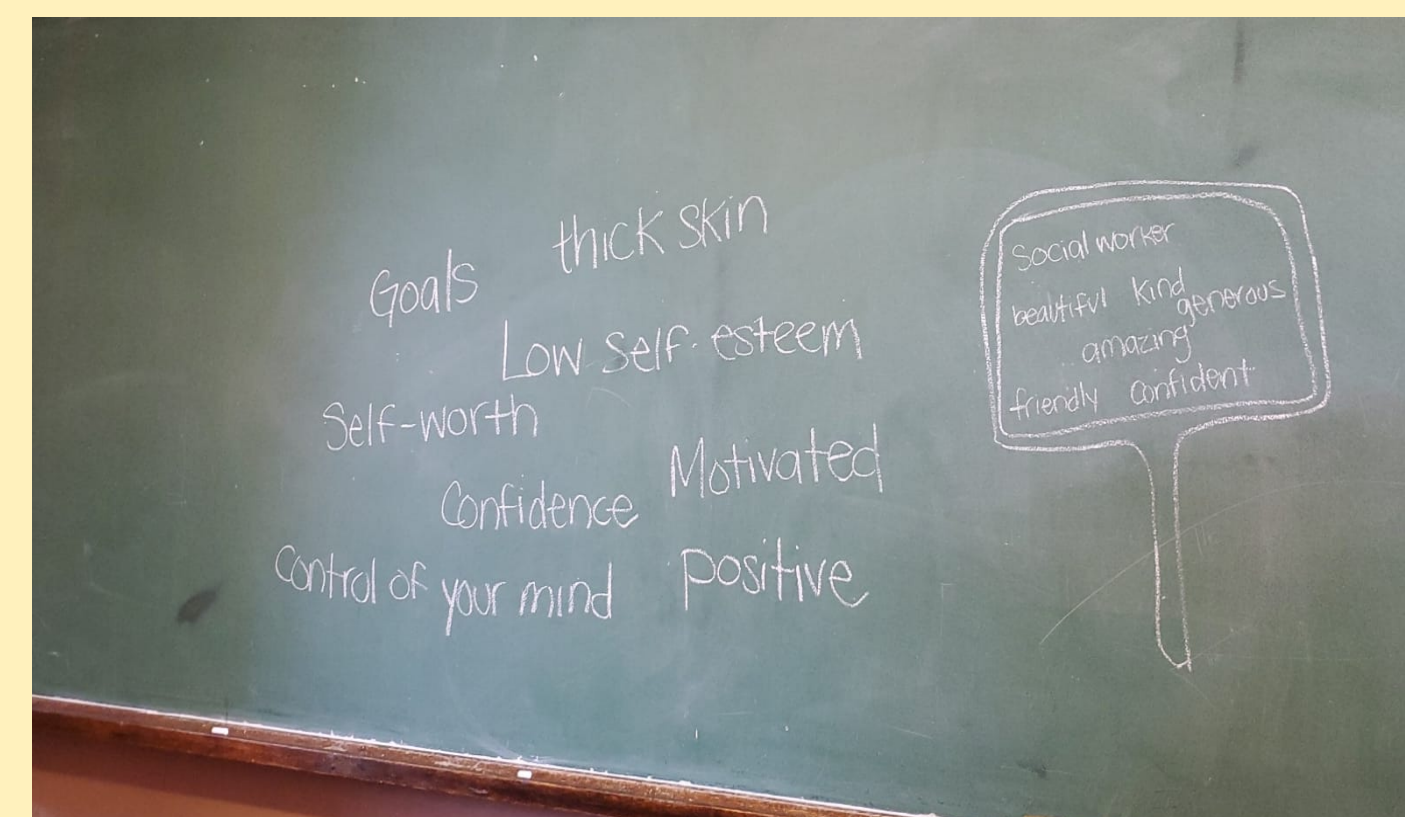 thick skin
Goals
Low self-esteem
Self-worth
Motivated
Confidence
Control of your mind
positive
Social worker
beautiful kind generous
amazing
friendly confident